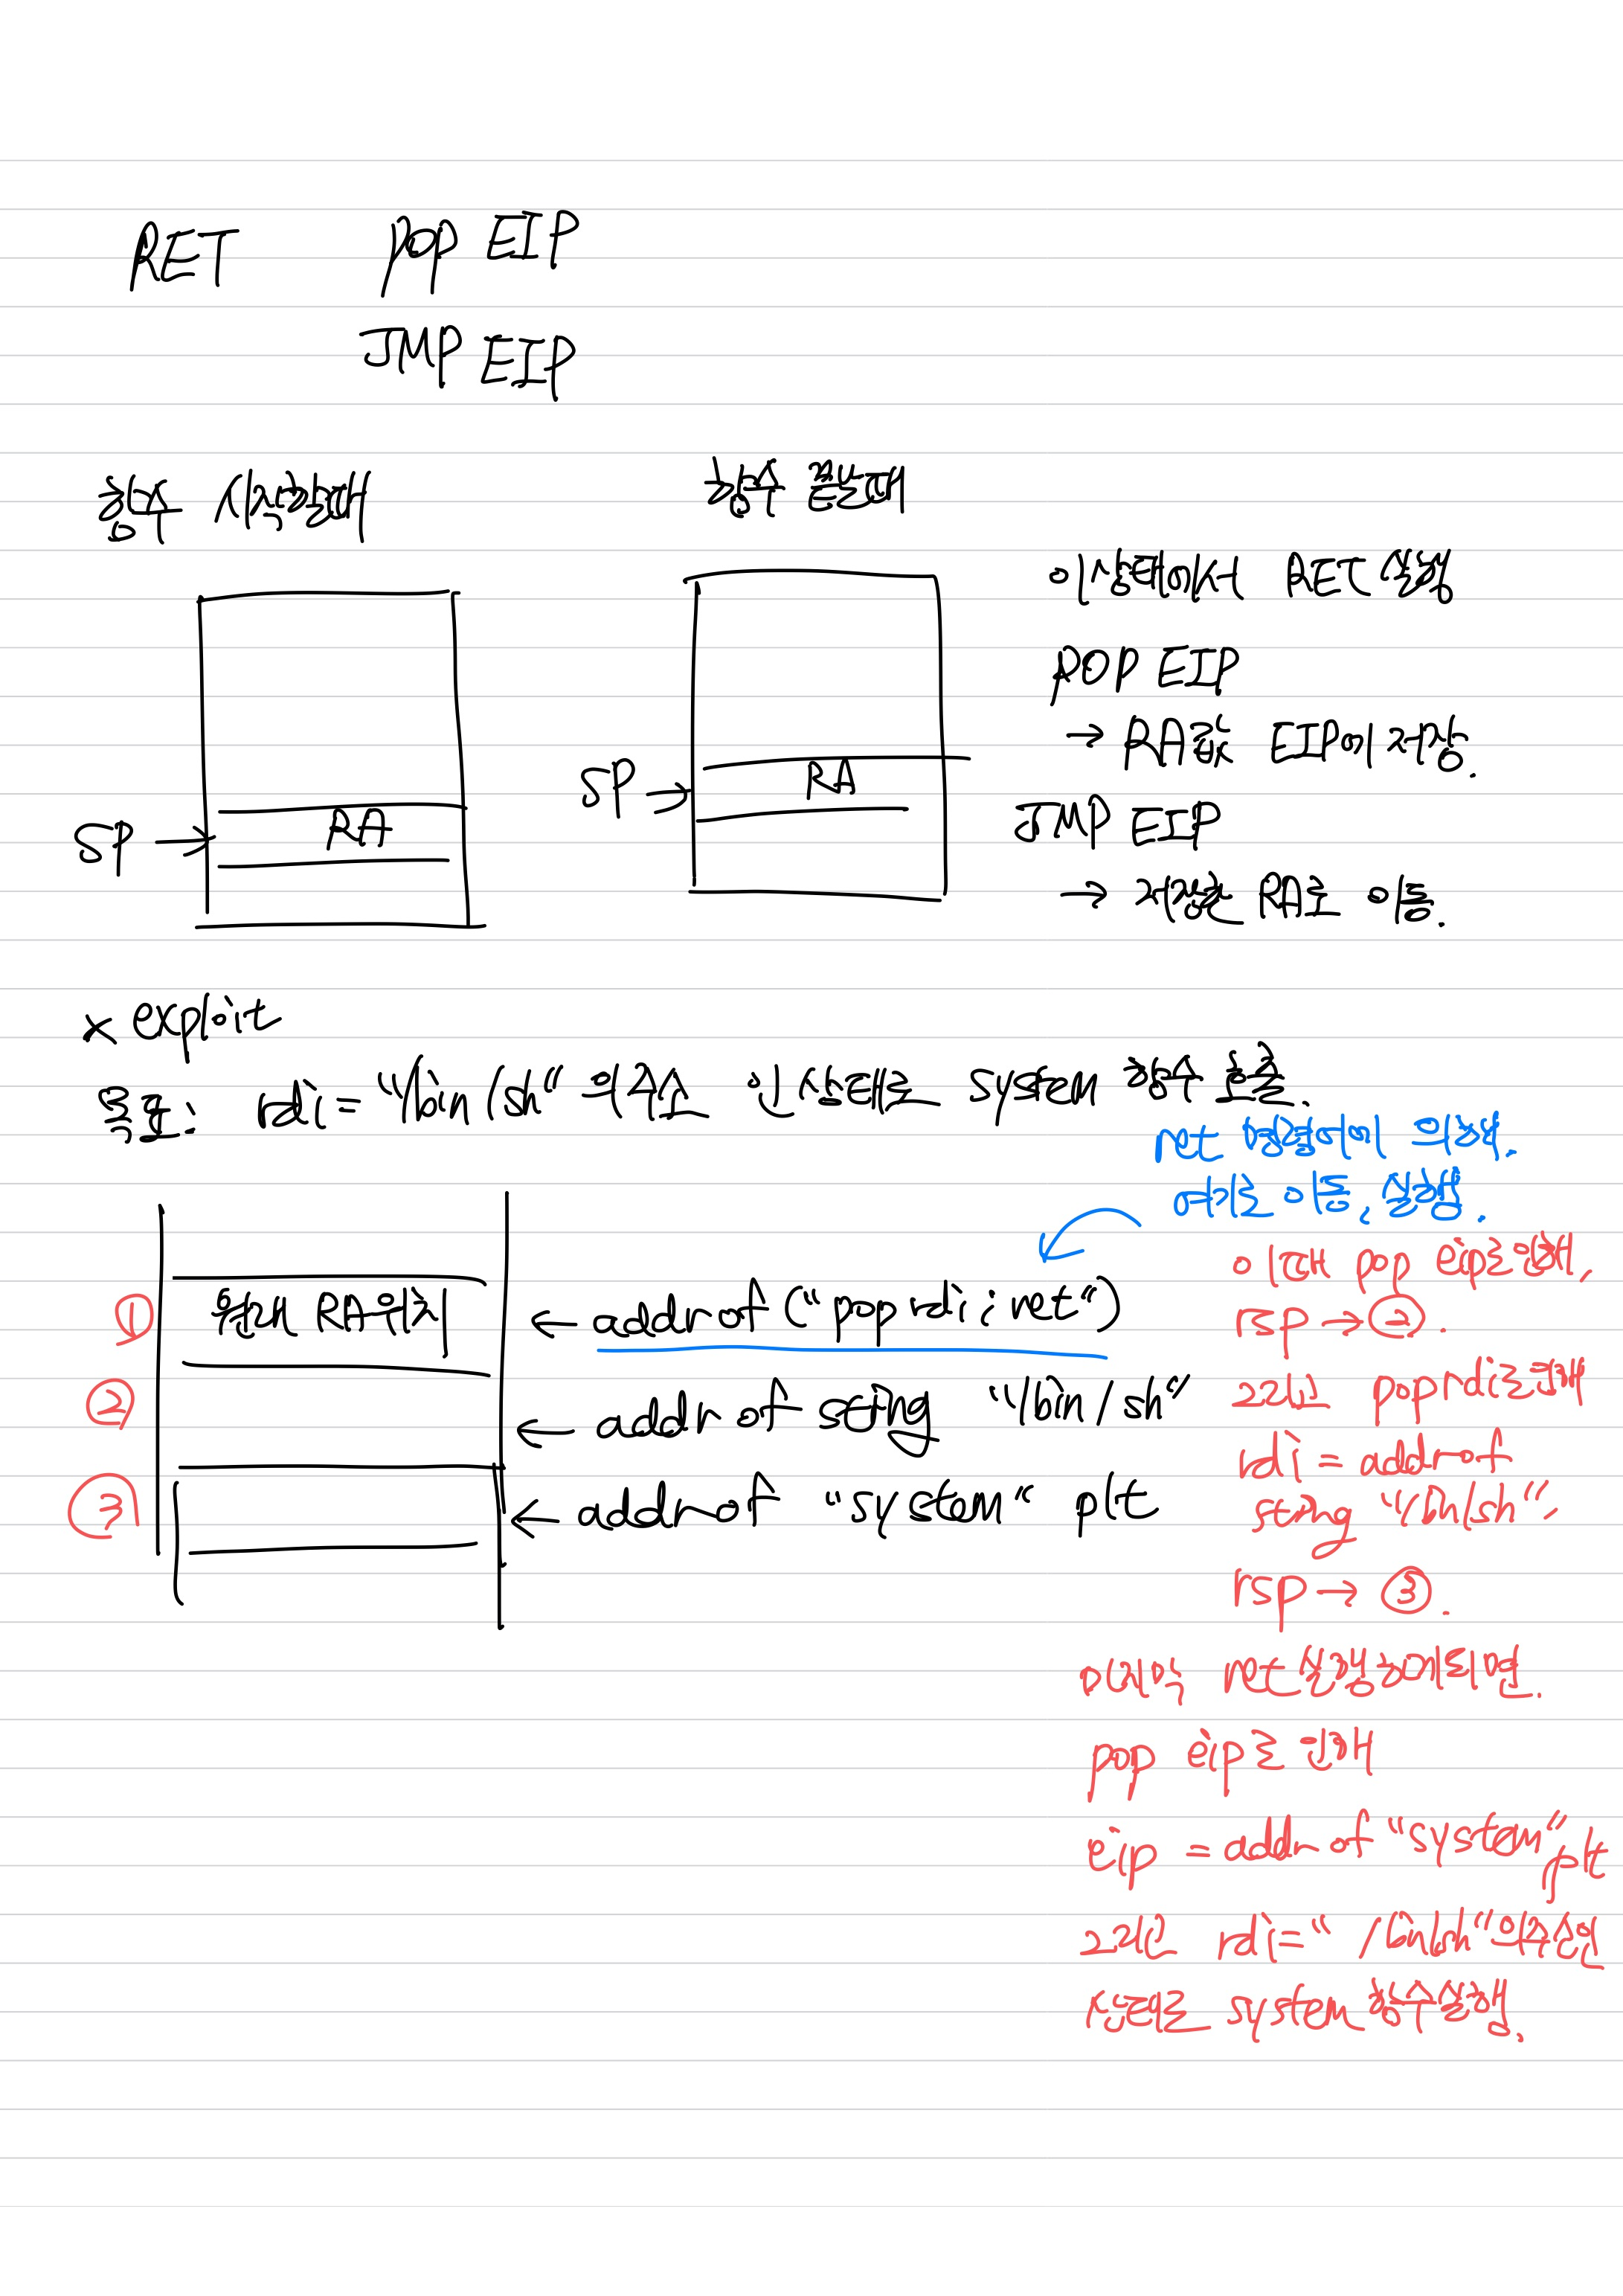 RET POP EIP
JMP EIP
함수 시작할때
함수 끝날때
이 상태에서 RET 실행
POP EIP
→ RA값 EIP에 저장.
JMP EIP
→ 저장한 RA로 이동.
SP → RA
SP → RA
× exploit
목표: rdi = "/bin/sh" 의 주소 인 상태로 system 함수 호출.
ret 명령어에 의해.
여기로 이동, 실행.
① 원래 RA위치 ← addr of ("pop rdi; ret")
② ← addr of string "/bin/sh"
③ ← addr of "system" plt
이때 pop eip로 인해,
rsp → ②.
그리고 pop rdi로 인해
rdi = addr of
string "/bin/sh",
rsp → ③.
마지막 ret 실행하게되면.
pop eip로 인해
eip = addr of "system" plt
그리고 rdi = "/bin/sh"의 주소인
상태로 system 함수실행.